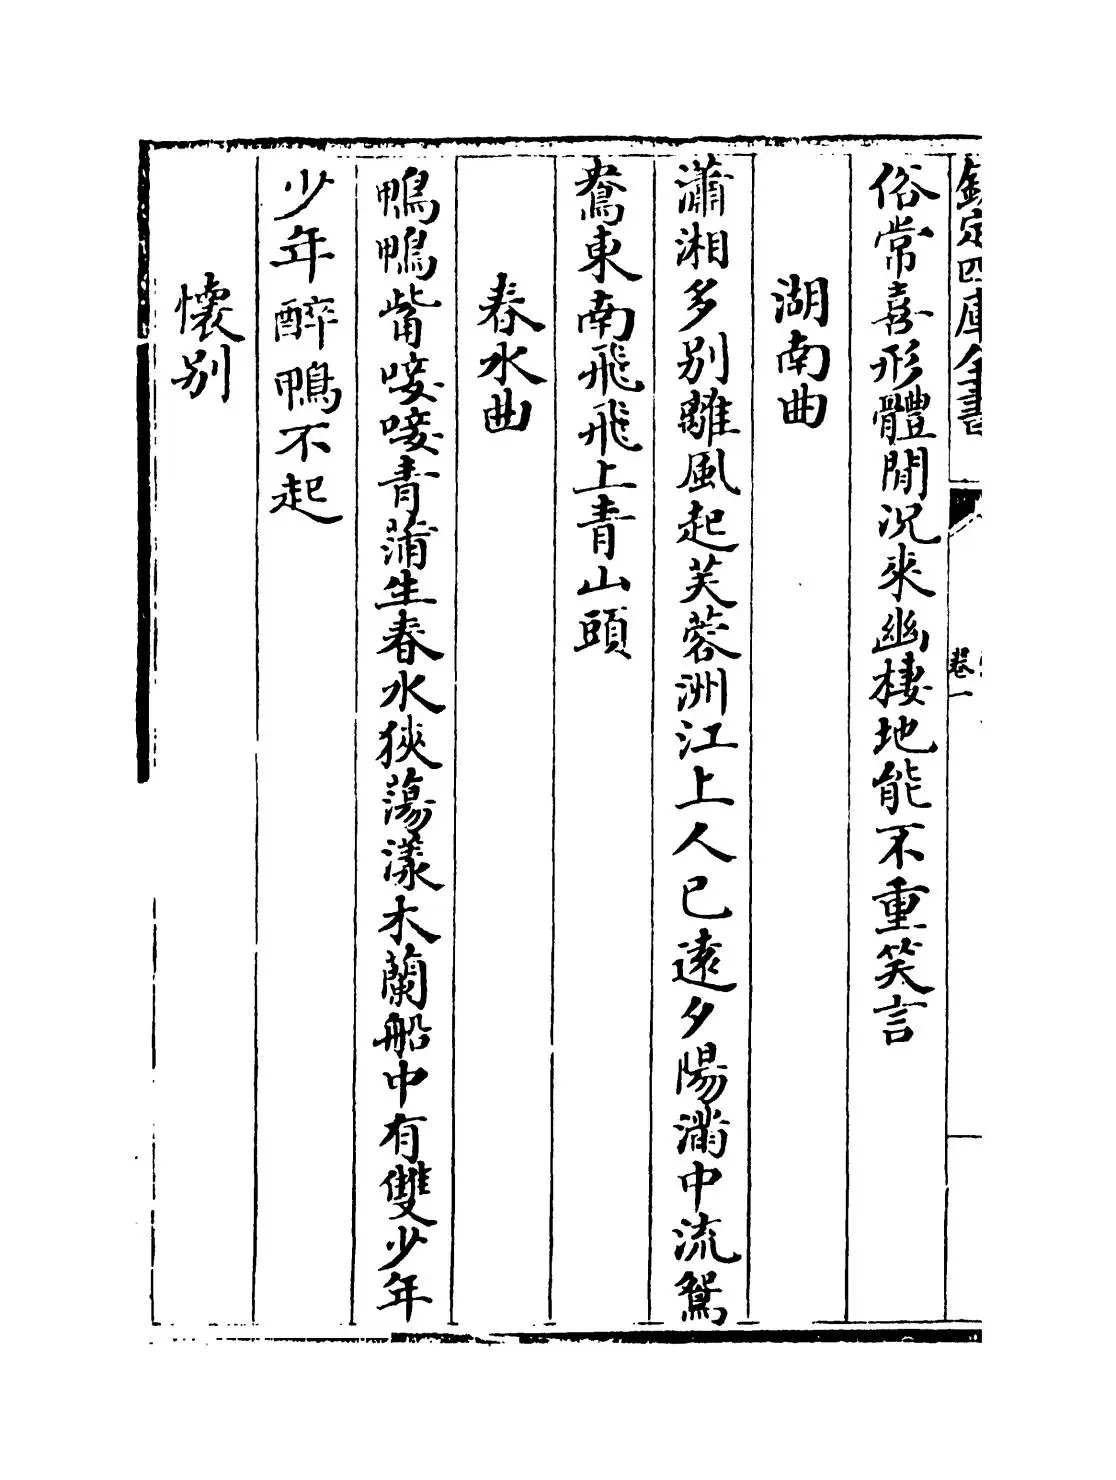 欽定四庫全書
卷一
俗常喜形體閒况來幽棲地能不重笑言
湖南曲
瀟湘多别離風起芙蓉洲江上人已遠夕陽滿中流鴛
鴦東南飛飛上青山頭
春水曲
鴨鴨觜唼唼青蒲生春水狹蕩漾木蘭船中有雙少年
少年醉鴨不起
懐别